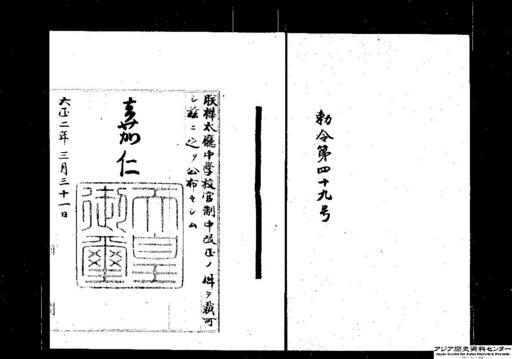 勅令第四十九号
朕樺太廳中学校官制中改正ノ件ヲ裁可
シ茲ニ之ヲ公布セシム
嘉仁
天皇
御璽
大正二年三月三十一日
アジア歴史資料センター
Japan Center for Asian Historical Records